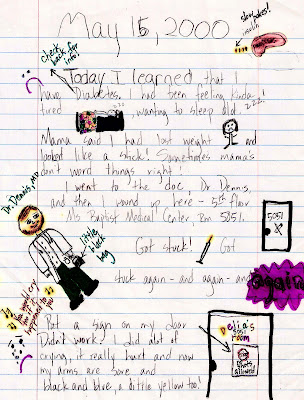 May 15, 2000
slow pokes!
insulin
check back for info!
Today I learned that I
have Diabetes. I had been feeling kinda
tired, wanting to sleep alot.
zzz!
Mama said I had lost weight and
looked like a stick! Sometimes mamas
don't word things right!
I went to the doc, Dr Dennis,
and then I wound up here - 5th floor
Ms Baptist Medical Center, Rm 5051.
Dr. Dennis, MD
little black bag
5051
Got stuck! Got
stuck again - and again - and
again
Put a sign on my door
Didn't work. I did alot of
crying, it really hurt and now
my arms are sore and
black and blue, a little yellow too!
you would cry too if it happened to you
Della's
5051
room
shots allowed!